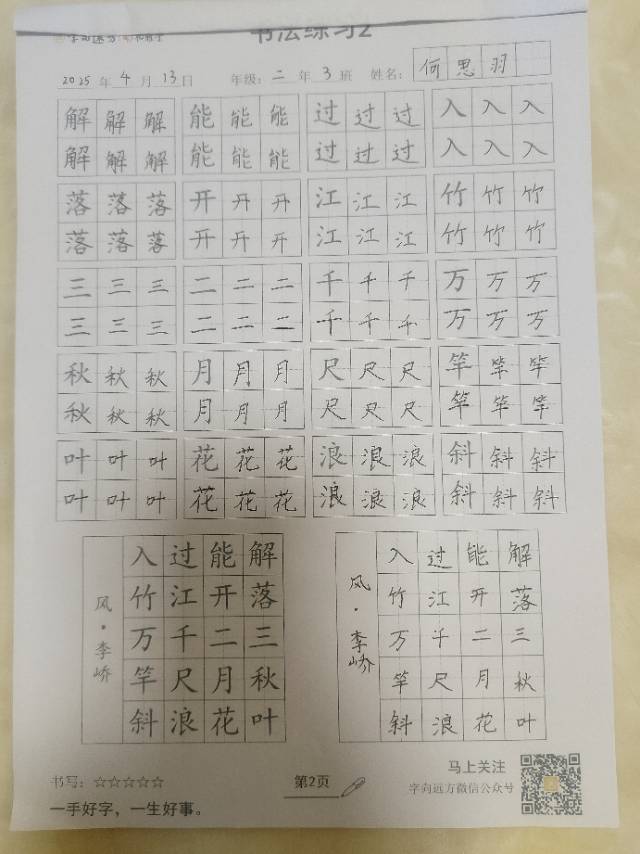 书法练习2
2025年4月13日 年级:二年3班 姓名:何思羽
解解解 能能能 过过过 入入入
解解解 能能能 过过过 入入入
落落落 开开开 江江江 竹竹竹
落落落 开开开 江江江 竹竹竹
三三三 二二二 千千千 万万万
三三三 二二二 千千千 万万万
秋秋秋 月月月 尺尺尺 竿竿竿
秋秋秋 月月月 尺尺尺 竿竿竿
叶叶叶 花花花 浪浪浪 斜斜斜
叶叶叶 花花花 浪浪浪 斜斜斜
风·李峤
入过能解
竹江开落
万千二三
竿尺月秋
斜浪花叶
风·李峤
入过能解
竹江开落
万千二三
竿尺月秋
斜浪花叶
书写:☆☆☆☆☆
一手好字,一生好事。
第2页
马上关注
字向远方微信公众号